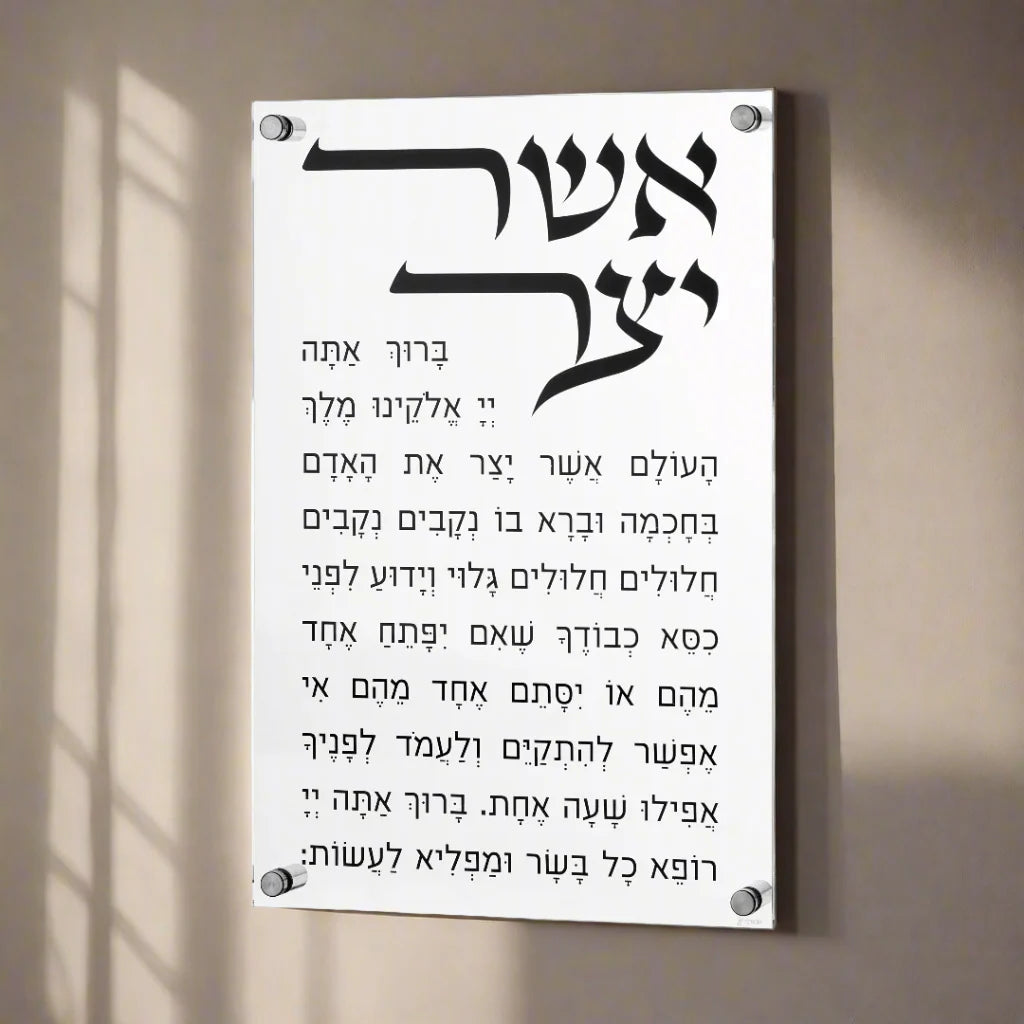 אשר
יצר
בָּרוּךְ אַתָּה
יְיָ אֱלֹקֵינוּ מֶלֶךְ
הָעוֹלָם אֲשֶׁר יָצַר אֶת הָאָדָם
בְּחָכְמָה וּבָרָא בוֹ נְקָבִים נְקָבִים
חֲלוּלִים חֲלוּלִים גָּלוּי וְיָדוּעַ לִפְנֵי
כִסֵּא כְבוֹדֶךָ שֶׁאִם יִפָּתֵחַ אֶחָד
מֵהֶם אוֹ יִסָּתֵם אֶחָד מֵהֶם אִי
אֶפְשַׁר לְהִתְקַיֵּם וְלַעֲמֹד לְפָנֶיךָ
אֲפִילוּ שָׁעָה אֶחָת. בָּרוּךְ אַתָּה יְיָ
רוֹפֵא כָל בָּשָׂר וּמַפְלִיא לַעֲשׂוֹת: